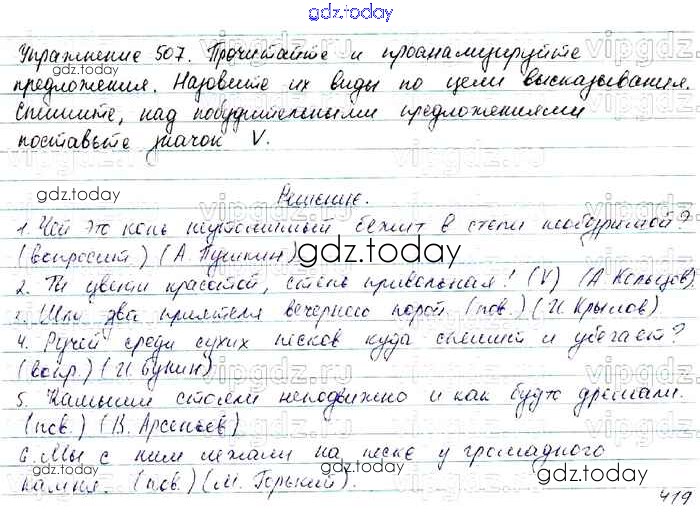 gdz.today
Упражнение 507. Прочитайте и проанализируйте
предложения. Назовите их виды по цели высказывания.
Спишите, над побудительными предложениями
поставьте значок V.
gdz.today
Решение.
1. Чей это конь неутомимый бежит в степи необозримой?
(вопросит.) (А. Пушкин)
gdz.today
2. Ты цвети красотой, степь привольная! (V) (А Кольцов)
3. Шли два приятеля вечернею порой. (пов.) (И. Крылов)
4. Ручей среди сухих песков куда спешит и убегает?
(вопр.) (И Бунин)
5. Камыши стояли неподвижно и как будто дремали.
(пов.) (В. Арсеньев)
6. Мы с ним лежали на песке у громадного
камня. (пов.) (М. Горький).
gdz.today
419